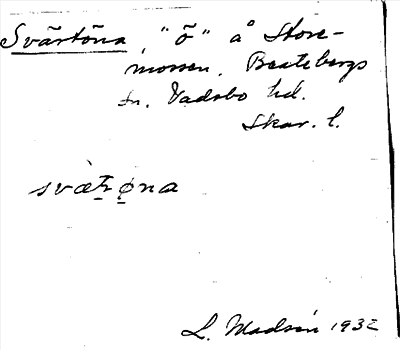 Svärtöna, "ö" å Store-
mossen. Beatebergs
sn. Vadsbo hd.
Skar. l.
svæ̀tʀ̥øna
L. Madsén 1932